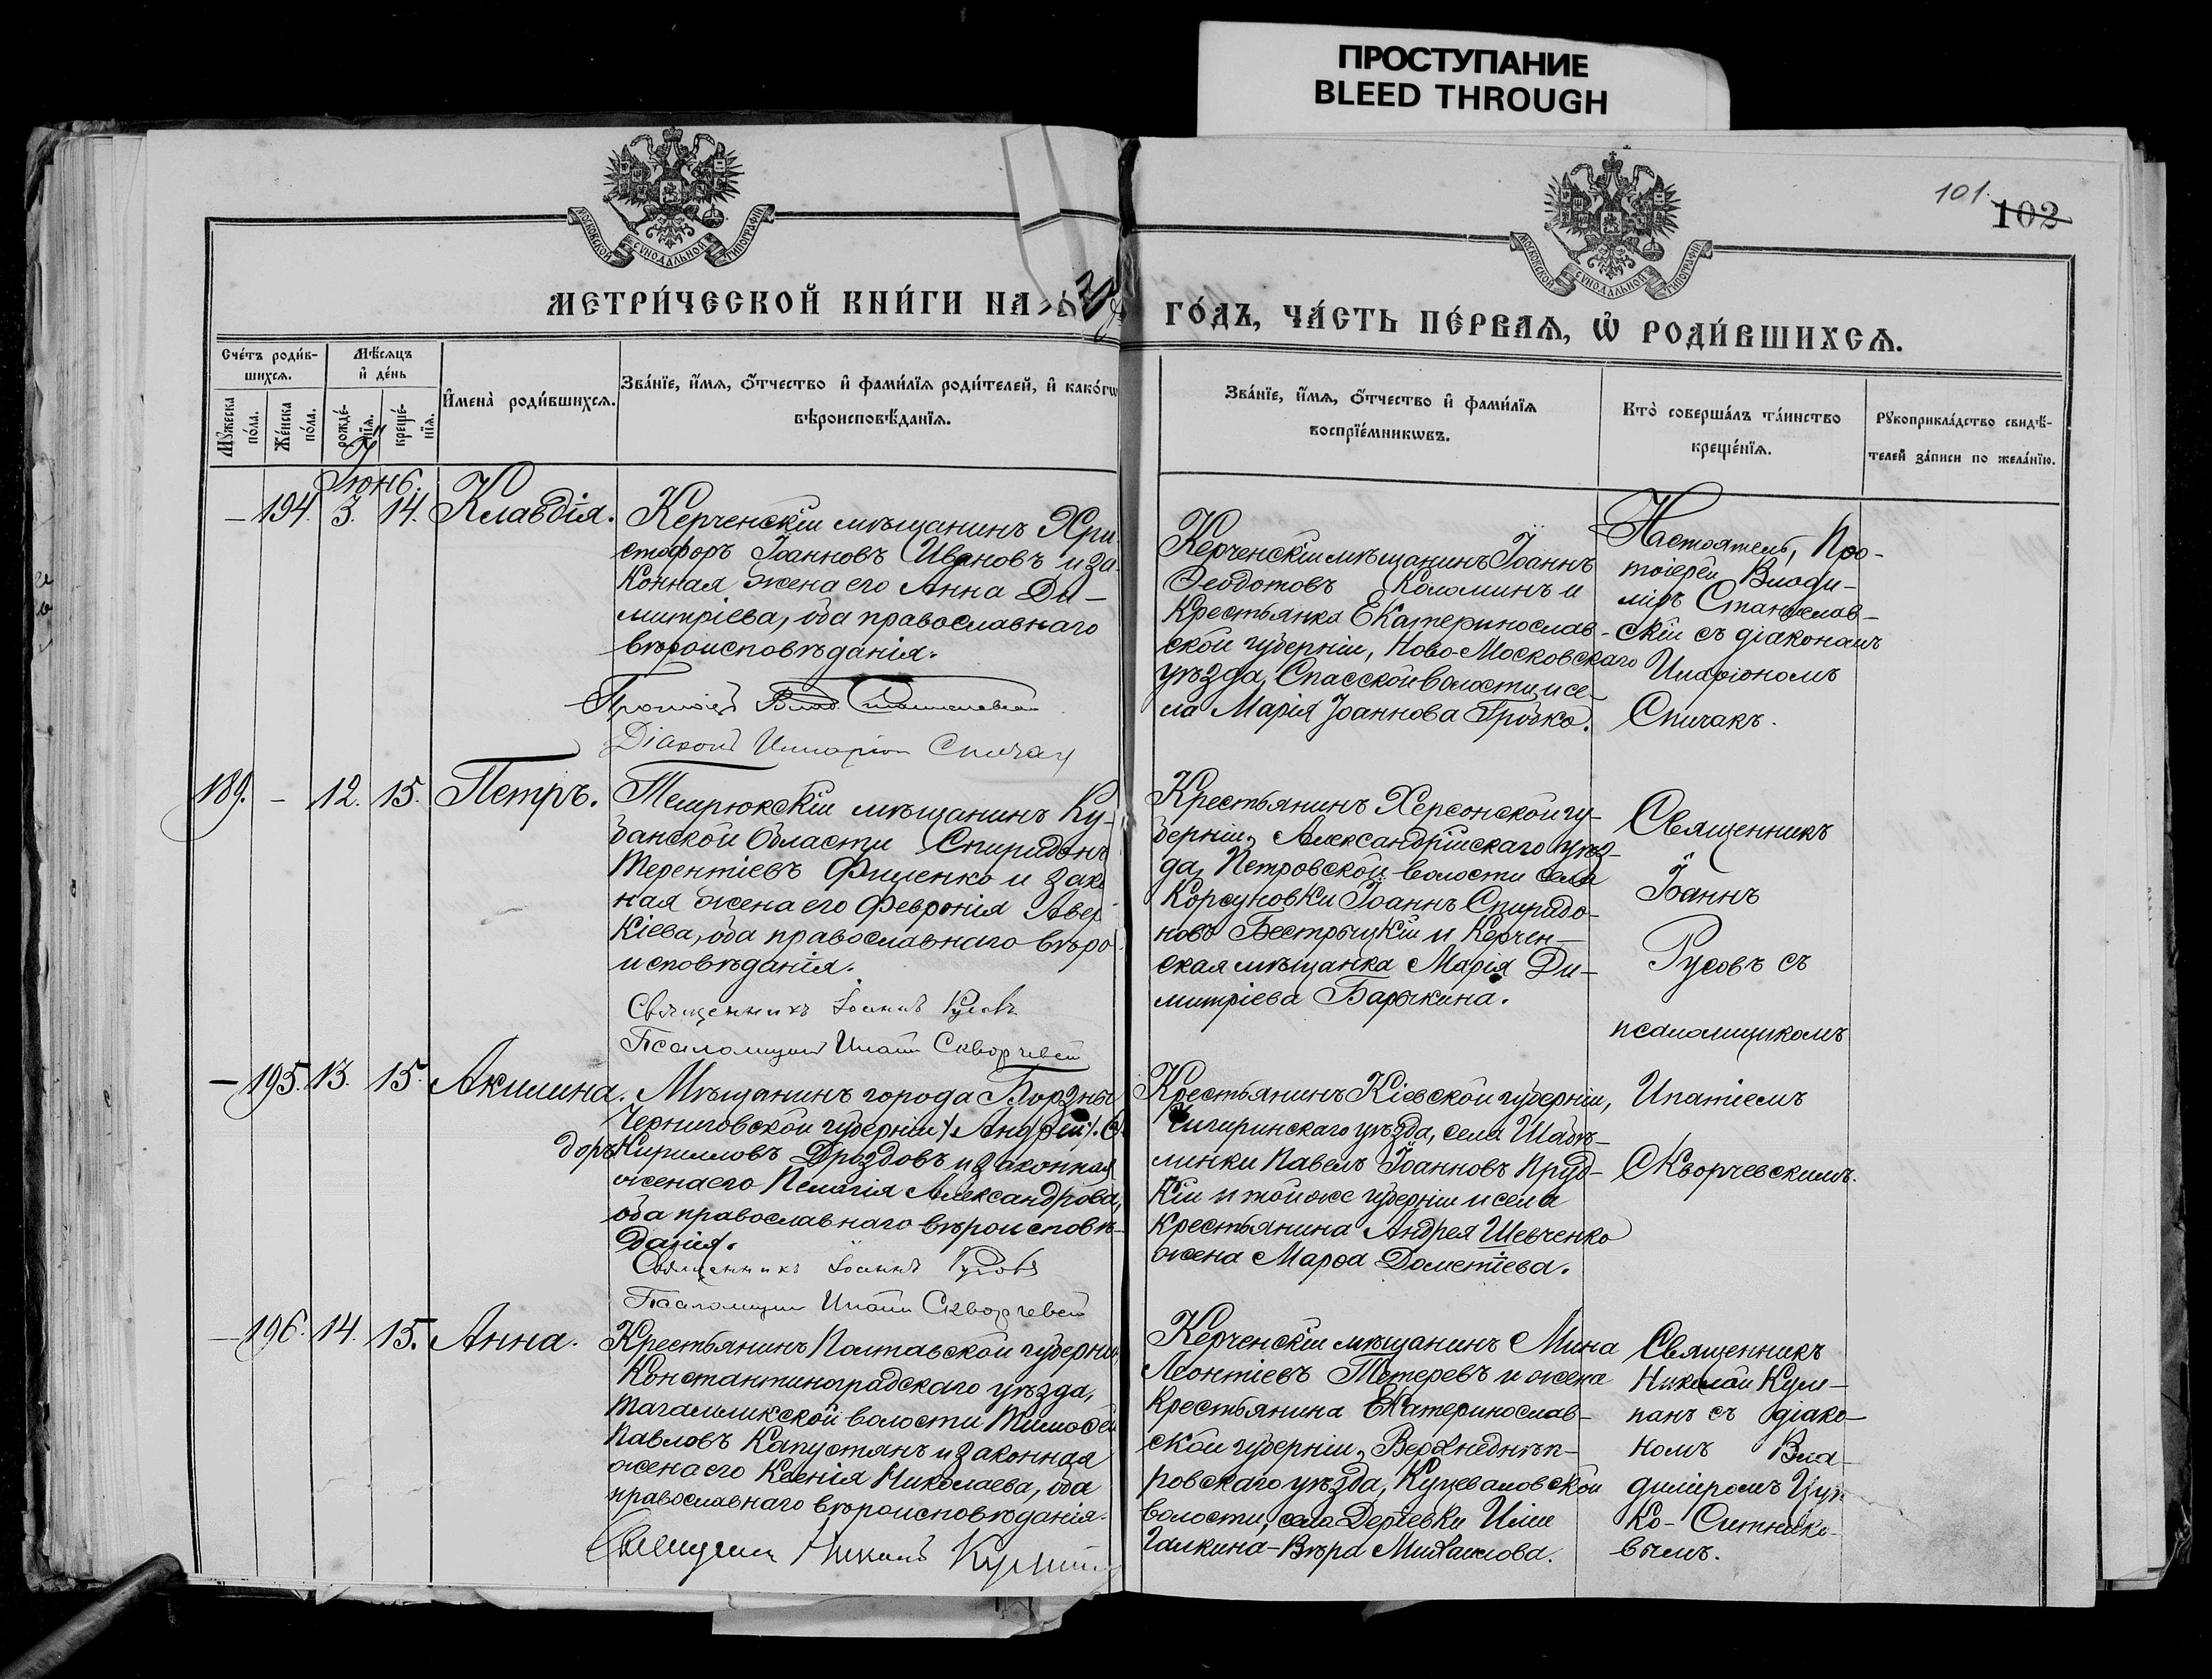 ПРОСТУПАНИЕ
BLEED THROUGH
101.
102
МОСКОВСКОЙ СѴНОДАЛЬНОЙ ТИПОГРАФІИ
МОСКОВСКОЙ СѴНОДАЛЬНОЙ ТИПОГРАФІИ
МЕТРИ́ЧЕСКОЙ КНИ́ГИ НА
ГО́ДЪ, ЧА́СТЬ ПЕ́РВАѦ, Ѽ РОДИ́ВШИХСѦ.
Сче́тъ роди́в-
шихсѧ.
Мѣ́сѧцъ
и҆ де́нь
Мꙋ́жеска
по́ла.
Же́нска
по́ла.
рожде́-
нїѧ.
креще́-
нїѧ.
И҆мена̀ роди́вшихсѧ.
Зва́нїе, и҆́мѧ, ѻ҆́тчество и҆ фами́лїѧ роди́телей, и҆ како́гѡ
вѣроисповѣ́данїѧ.
Зва́нїе, и҆́мѧ, ѻ҆́тчество и҆ фами́лїѧ
воспрїе́мникѡвъ.
Кто̀ соверша́лъ та́инство
креще́нїѧ.
Рꙋкоприкла́дство свидѣ́-
телей за́писи по жела́нїю.
Іюнь.
– 194. 3. 14. Клавдія.
Керченскій мѣщанинъ Хри
стофоръ Іоанновъ Ивановъ и за
конная жена его Анна Ди–
митріева, оба православнаго
вѣроисповѣданія.
Діаконъ Иларіон Спичак
Керченскій мѣщанинъ Іоаннъ
Ѳеодотовъ Коломинъ и
крестьянка Екатеринослав-
ской губерніи, Ново-Московскаго
уѣзда, Спасской волости и се-
ла Марія Іоаннова Гробко.
Настоятель, Про-
тоіерей Влади-
міръ Станиslав-
скій съ діакономъ
Иларіономъ
Спичакъ.
189. – 12. 15. Петръ.
Темрюкскій мѣщанинъ Ку-
банской Области Спиридонъ
Терентіевъ Фименко и зако
ная жена его Февронія Авер
кіева, оба православнаго вѣро
исповѣданія.
Священникъ Іоаннъ Русовъ
Псаломщикъ
Крестьянинъ Херсонской гу-
берніи, Александрійскаго уѣз-
да, Петровской волости села
Корсуновки Іоаннъ Спиридо-
новъ Бестрыцкій и Керчен–
ская мѣщанка Марія Ди–
митріева Барыкина.
Священникъ
Іоаннъ
Русовъ съ
псаломщикомъ
– 195. 13. 15. Акилина.
Мѣщанинъ города Борзны
Черниговской губерніи /. Андрей /. Ѳ.
доръ Кирилловъ Дроздовъ и законная
жена его Пелагія Александрова,
оба православнаго вѣроисповѣ-
данія.
Священникъ Іоаннъ Русовъ
Псаломщик
Крестьянинъ Кіевской губерніи,
Чигиринскаго уѣзда, села Шабѣ-
линки Павелъ Іоанновъ Пруд-
кій и той же губерніи и села
крестьянина Андрея Шевченко
жена Марѳа Дометіева.
Ипатіемъ
Скворчевскимъ.
– 196. 14. 15. Анна.
Крестьянинъ Полтавской губерніи,
Константиноградскаго уѣзда,
Тагамликской волости Тимоѳей
Павловъ Капустянъ и законная
жена его Ксенія Николаева, оба
православнаго вѣроисповѣданія.
Керченскій мѣщанинъ Мина
Леонтіевъ Тетеревъ и жена
крестьянина Екатеринослав-
ской губерніи, Верхнеднѣп-
ровскаго уѣзда, Куцеваловской
волости, села Деріевки Иліи
Галкина – Вѣра Михаилова.
Священникъ
Николай Кул-
панъ съ діако-
номъ Вла-
диміромъ Цуп-
ко-Ситнико-
вымъ.